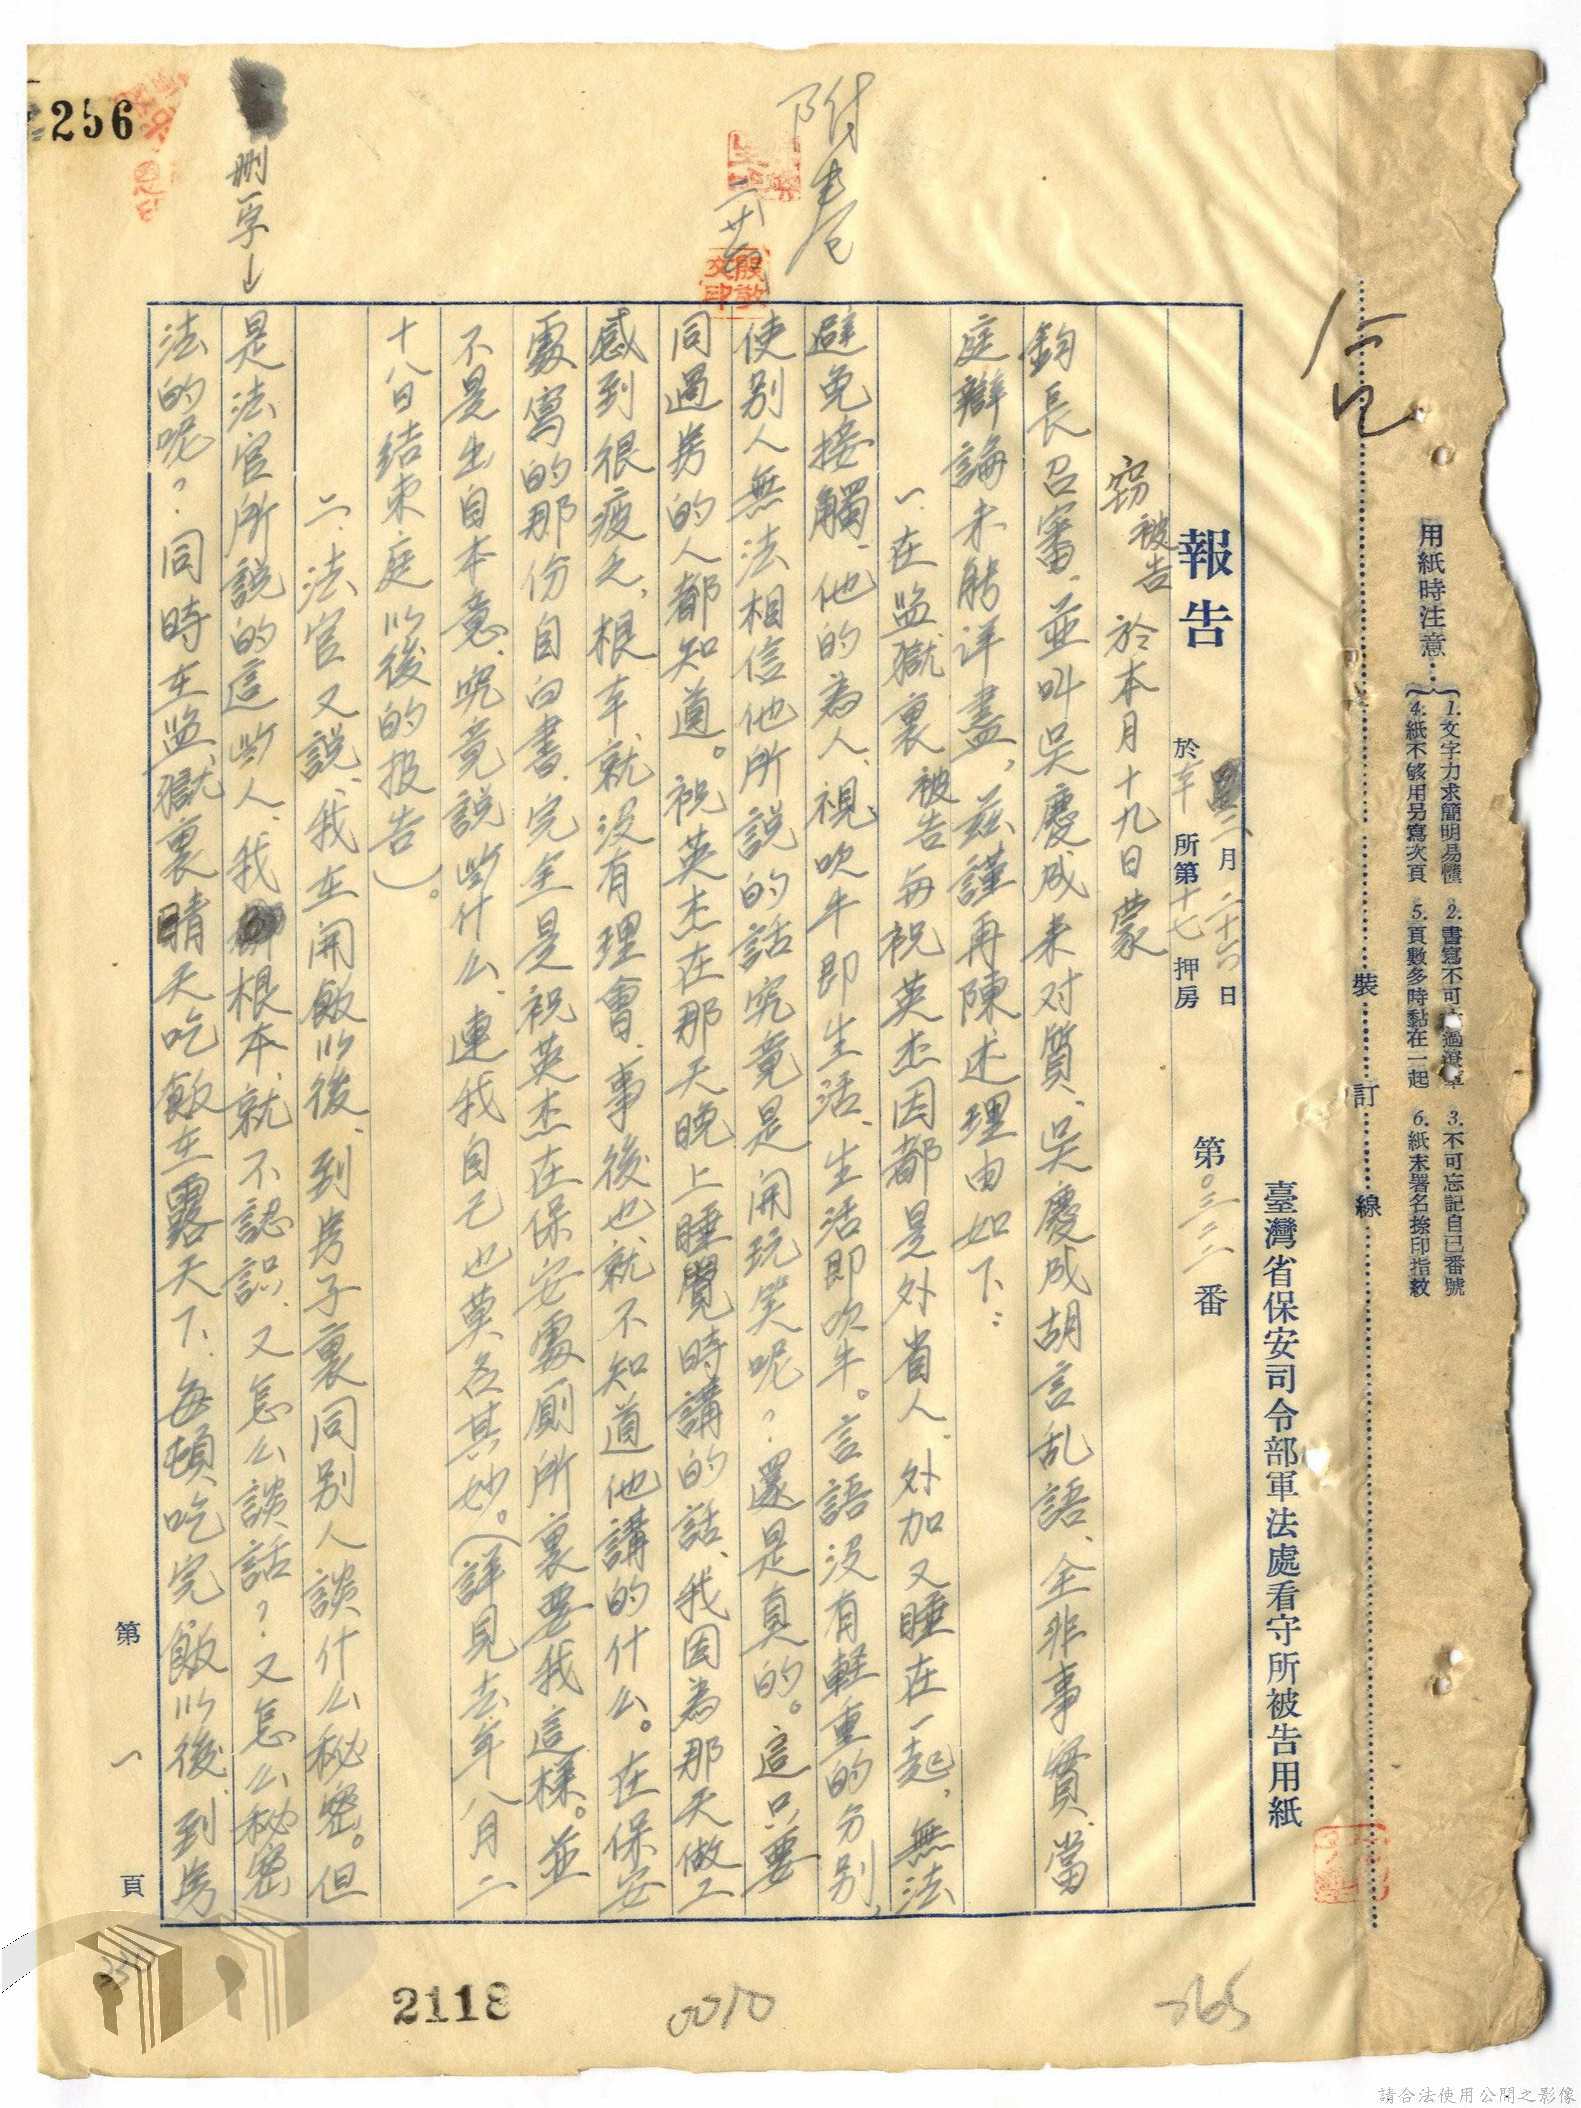 用紙時注意…
1.文字力求簡明易懂 2.書寫不可 過潦草 3.不可忘記自己番號
4.紙不够用另寫次頁 5.頁數多時黏在一起 6.紙末署名捺印指紋
裝 訂 線
臺灣省保安司令部軍法處看守所被告用紙
報告
二月二十六日
於本所第十七押房
第〇三二二番
竊被告於本月十九日蒙
鈞長召審，並叫吳慶成来对質、吳慶成胡言乱語、全非事實、當
庭辯論未能详盡，茲謹再陳述理由如下：
一、在监獄裏被告每祝英杰因都是外省人、外加又睡在一起，無法
避免接觸、他的為人、視吹牛即生活、生活即吹牛。言語没有軽重的分别，
使别人無法相信他所説的話究竟是開玩笑呢？還是真的。這只要
同過房的人都知道。祝英杰在那天晚上睡覺時講的話、我因為那天做工
感到很疲乏，根本就没有理會、事後也就不知道他講的什么。在保安
處寫的那份自白書、完全是祝英杰在保安處厠所裏要我這様。並
不是出自本意、究竟説些什么、連我自己也莫名其妙。（詳見去年八月二
十八日结束庭以後的报告）。
二、法官又説、我在開飯以後、到房子裏同别人談什么秘密。但
是法官所説的這些人、我根本就不認識、又怎么談話？又怎么秘密
法的呢？同時在监獄裏晴天吃飯在露天下、每頓吃完飯以後、到房
删一字↓
附卷
二廿六
殷敬文印
256
第 一 頁
2118
0010
265
請合法使用公開之影像